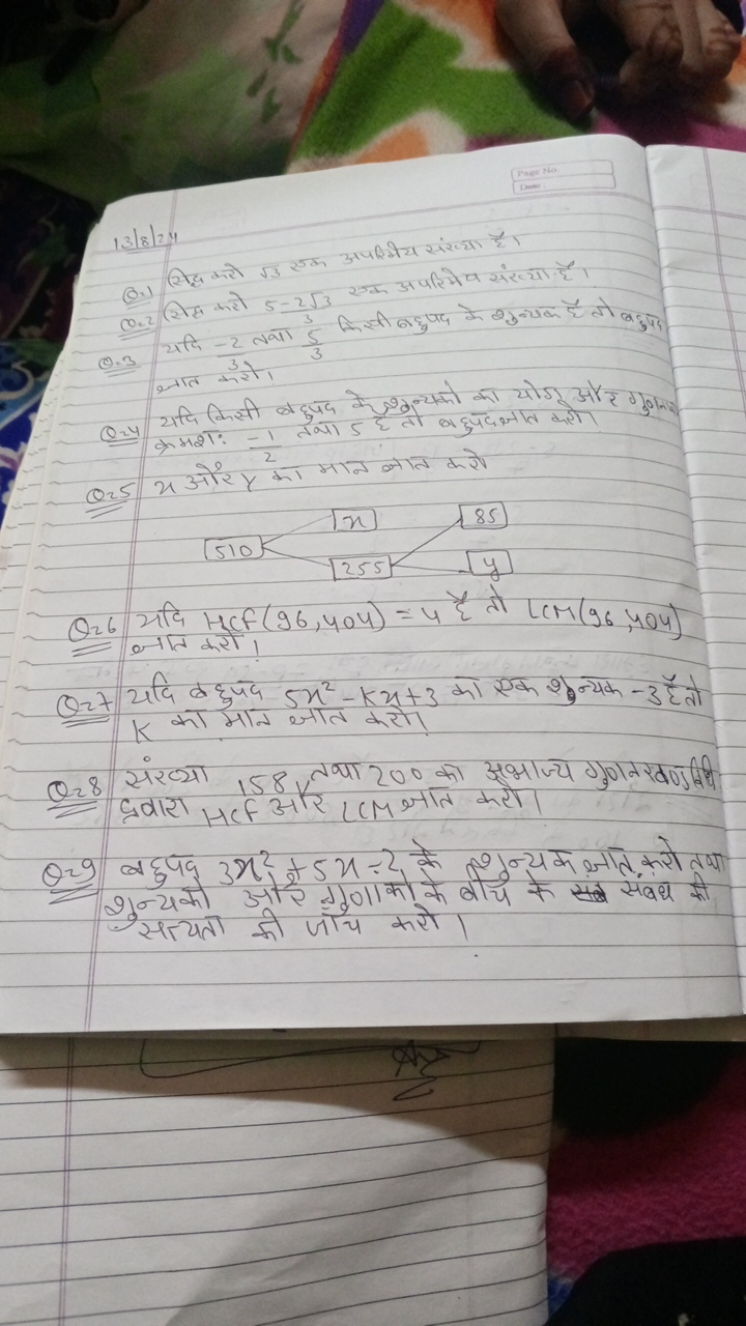 Page No.
Date:
13/8/24
Q.1 सिद्ध करो √3 एक अपरिमेय संख्या है।
Q.2 सिद्ध करो 5-2√3/3 एक अपरिमेय संख्या है।
Q.3 यदि -2/3 तथा 5/3 किसी बहुपद के शुन्यक है तो बहुपद
ज्ञात करो।
Q.4 यदि किसी बहुपद के शुन्यको का योग और
क्रमश: -1/2 तथा 5 है तो बहुपद ज्ञात करो।
Q.5 x और y का मान ज्ञात करो
x 85
510
255 y
Q.6 यदि HCF(96,404) = 4 है तो LCM(96,404)
ज्ञात करो।
Q.7 यदि बहुपद 5x² - Kx + 3 का एक शुन्यक -3 है तो
K का मान ज्ञात करो।
Q.8 संख्या 158, तथा 200 का अभाज्य गुणनखण्ड विधी
द्वारा HCF और LCM ज्ञात करो।
Q.9 बहुपद 3x² + 5x - 2 के शुन्यक ज्ञात करो तथा
शुन्यको और गुणाको के बीच के सबंध की
सत्यता की जाँच करो।